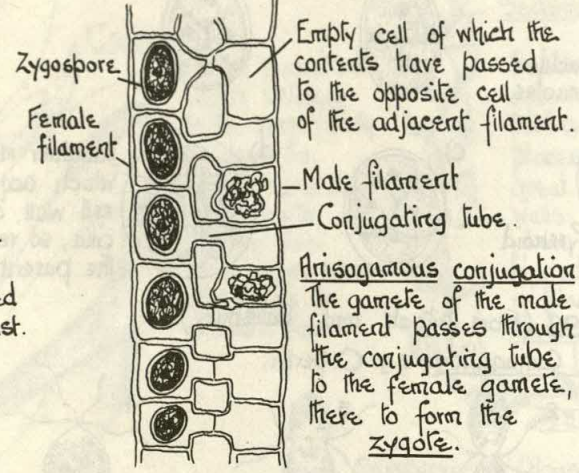 Zygospore
Female
filament
Empty cell of which the
contents have passed
to the opposite cell
of the adjacent filament.
Male filament
Conjugating tube
Anisogamous conjugation
The gamete of the male
filament passes through
the conjugating tube
to the female gamete,
there to form the
zygote.